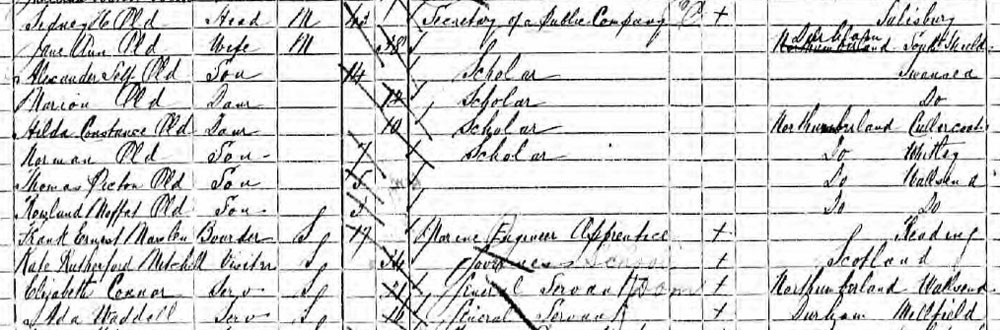 Sydney H. Old Head M 43 Secretary of a Public Company + Salisbury
Jane Ann Old Wife M 48 Durham South Shields
Alexander Old Son 14 Scholar Swansea
Marion Old Daur 12 Scholar Do
Hilda Constance Old Daur 10 Scholar Northumberland Cullercoats
Norman Old Son 7 Scholar Do Whitley
Thomas Picton Old Son 5 Do Wallsend
Rowland Moffat Old Son 3 Do Do
Frank Ernest Boarder S 19 Marine Engineer Apprentice + Reading
Kate Rutherford Mitchell Visitor S Governess School + Scotland
Elizabeth Connor Serv S General Servant Dom + Northumberland Wallsend
Ada Waddell Serv S General Servant + Durham Millfield